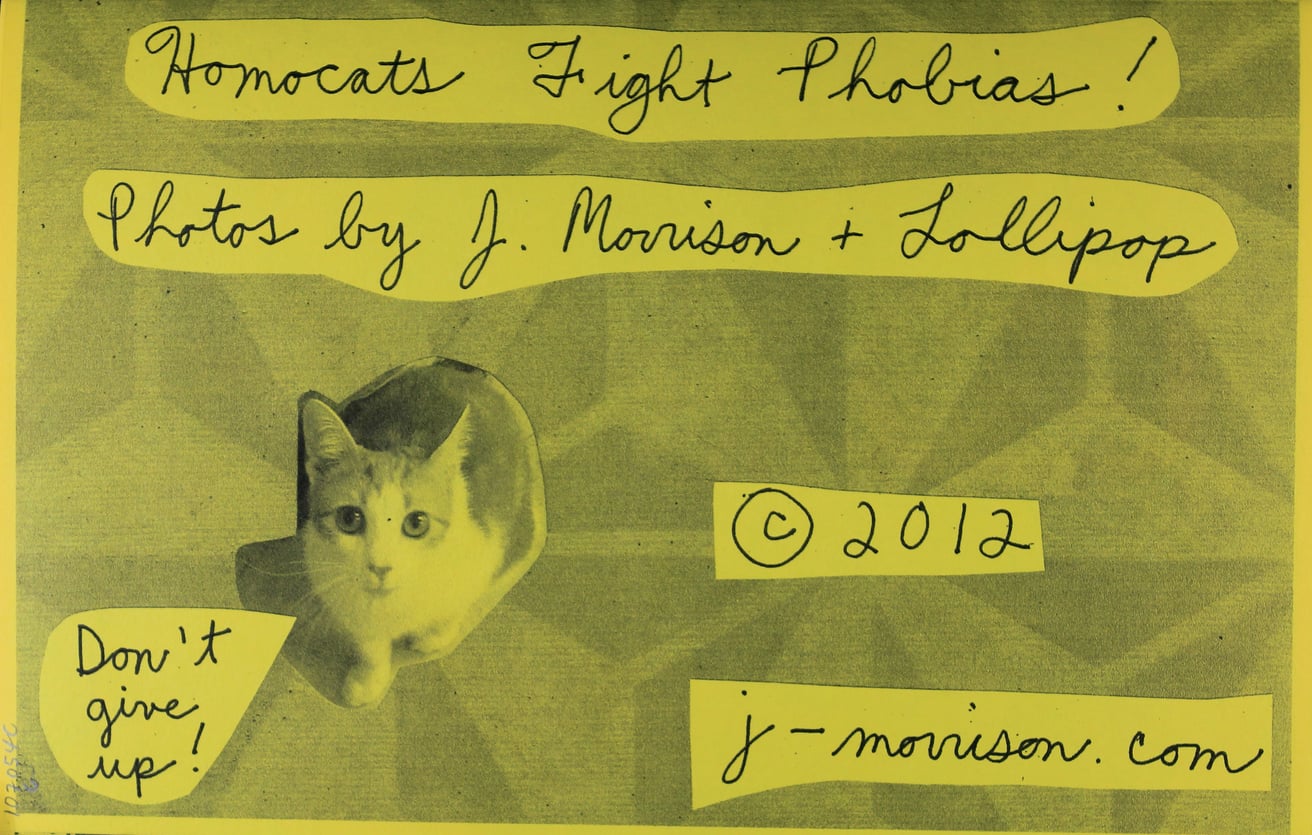 Homocats Fight Phobias!
Photos by J. Morrison + Lollipop
© 2012
Don't
give
up!
j-morrison.com